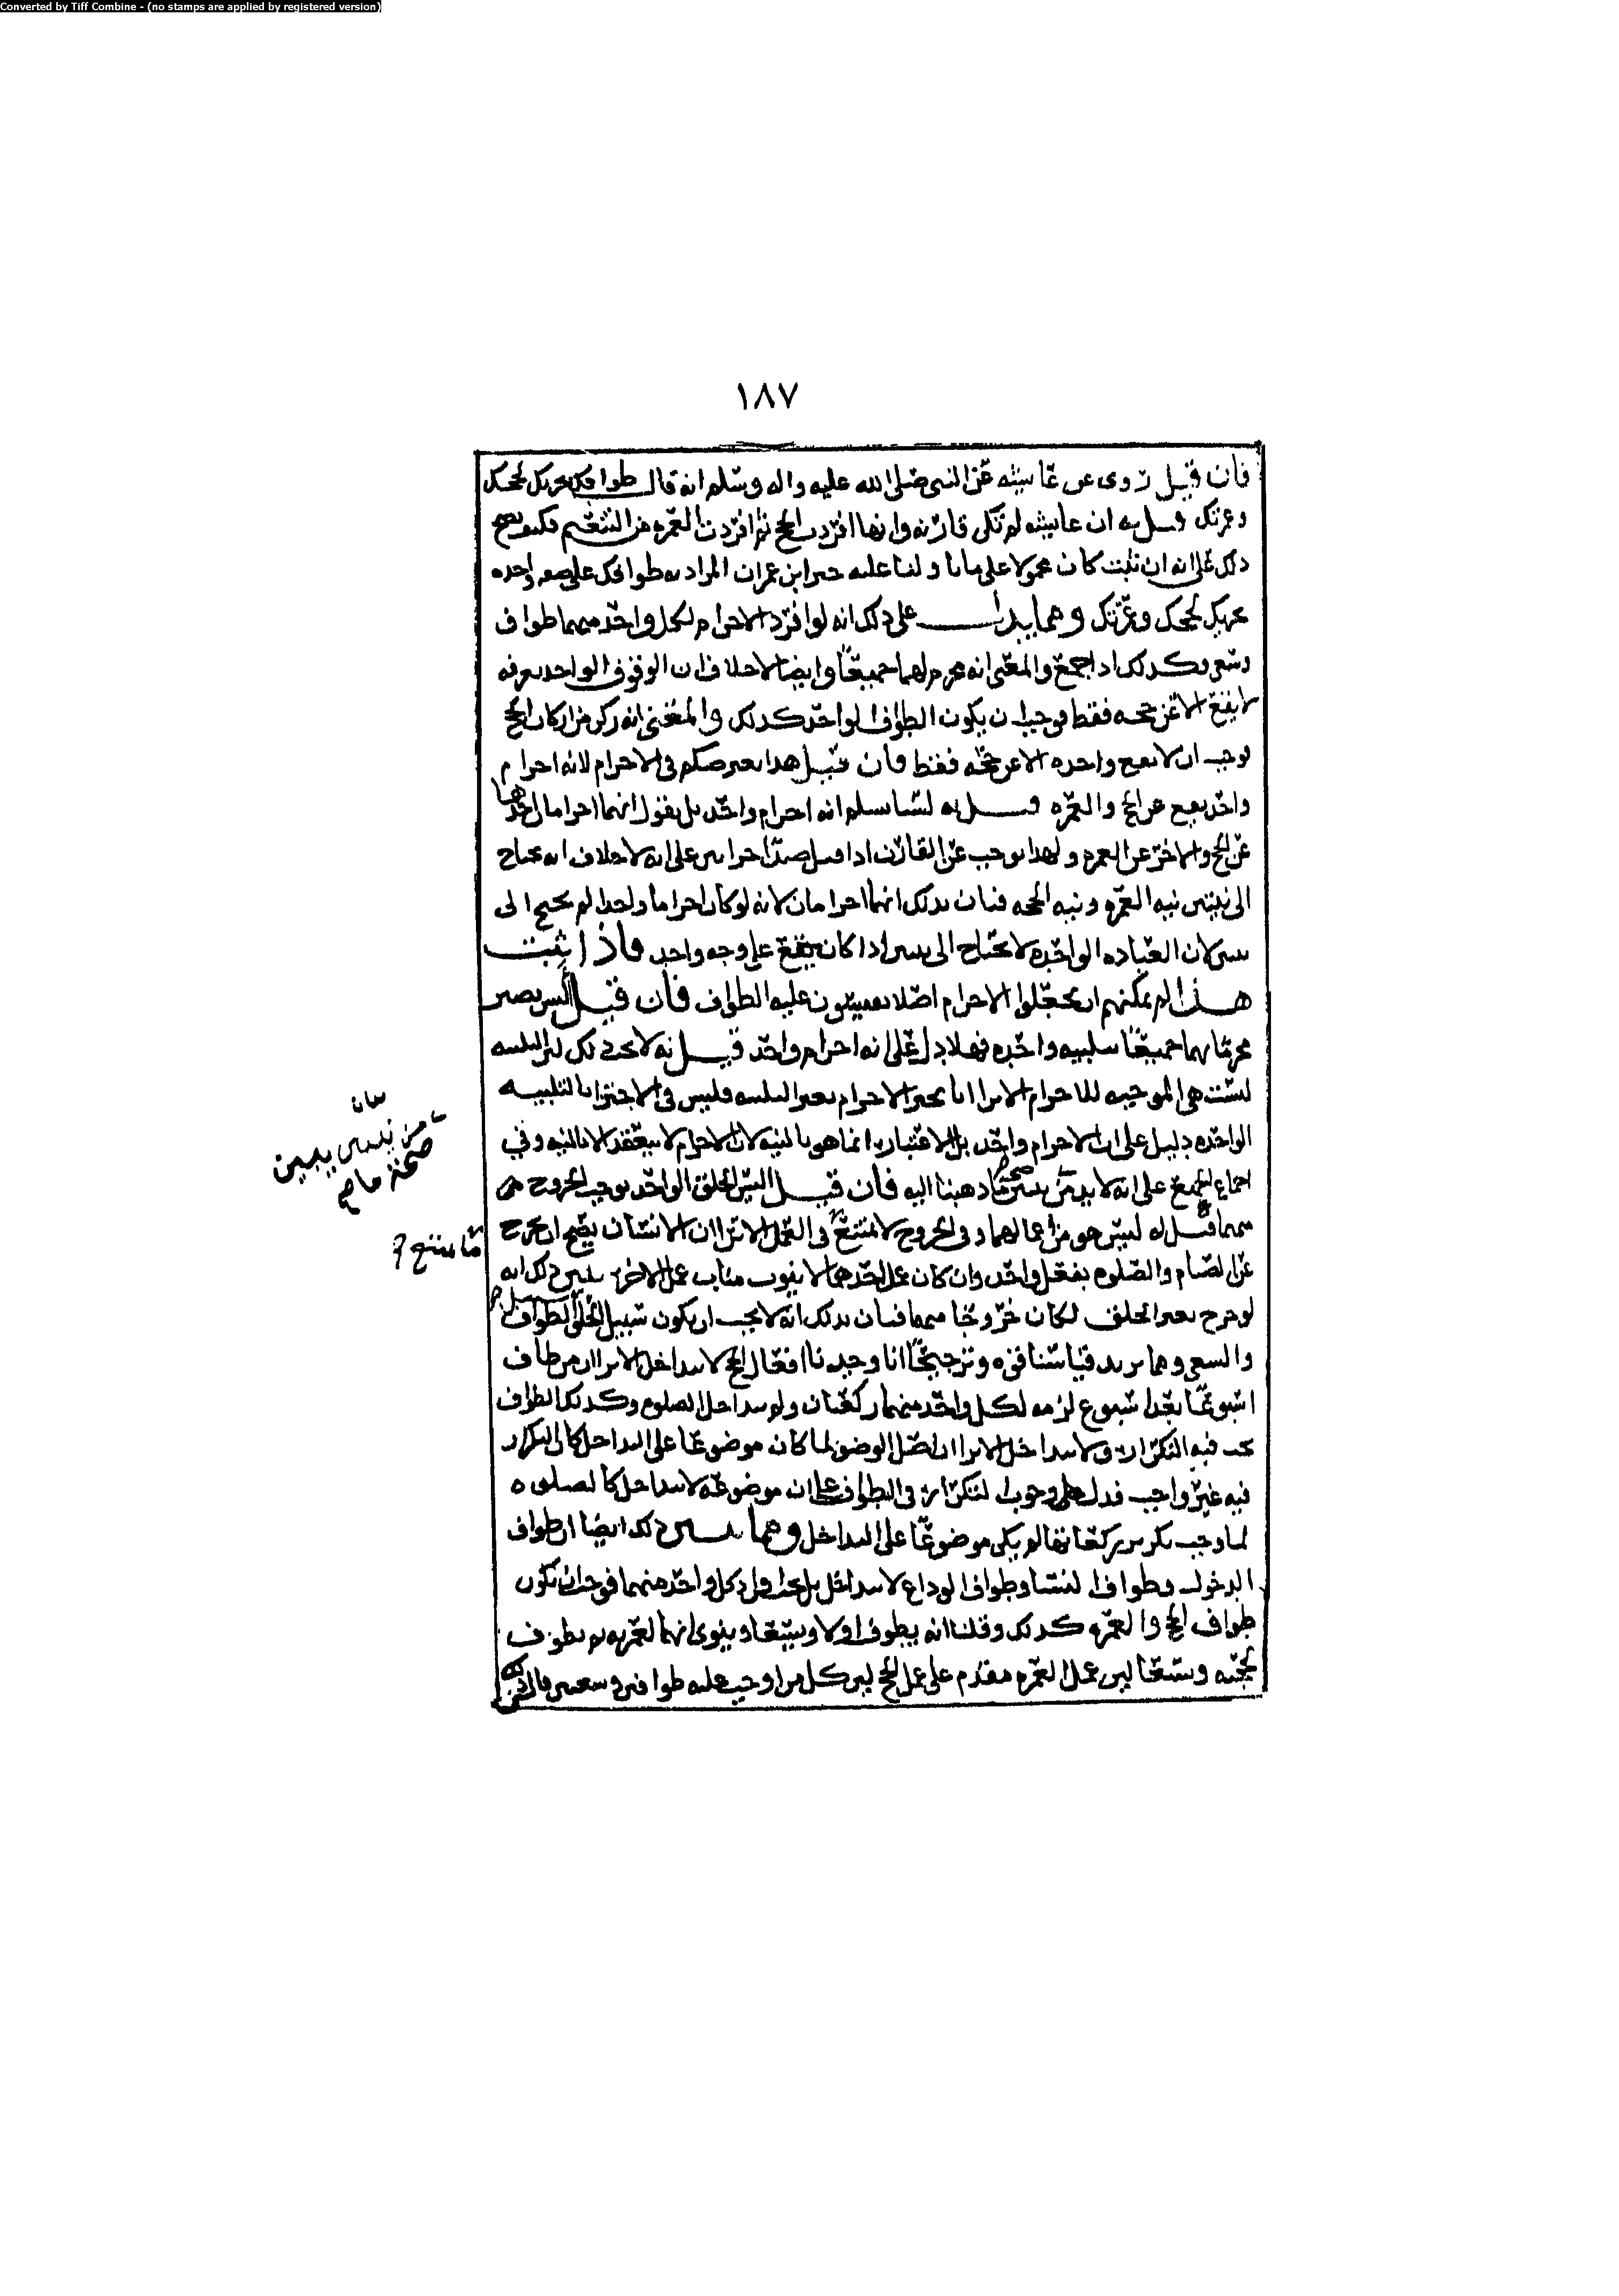 Converted by Tiff Combine - (no stamps are applied by registered version)
١٨٧
فان قيل روى عن عائشه عن النبي صلى الله عليه واله وسلم انه قال طوافك يجزيك لحجك
وعمرتك قيل له ان عائشه لم تكن قارنه وانها افردت الحج ثم افردت العمره من التنعيم فكيف يصح
ذلك على انه ان ثبت كان محمولا على ما تأولنا عليه خبر ابن عمر ان المراد به طوافك على صفه واحده
يجزيك لحجك وعمرتك ومما يدل على ذلك انه لو افرد الاحرام لكل واحد منهما طواف
وسعى وكذلك اذا جمع والمعنى انه محرم لهما جميعا وايضا لا خلاف ان الوقوف الواحد بعرفه
لا يقع الا عن حجه فقط فوجب ان يكون الطواف الواحد كذلك والمعنى انه ركن من اركان الحج
فوجب ان لا يقع واحده الا عن حجه فقط فان قيل هذا يعترضكم في الاحرام لانه احرام
واحد يقع عن الحج والعمره قيل له لسنا نسلم انه احرام واحد بل نقول انهما احرامان احدهما
عن الحج والاخر عن العمره ولهذا نوجب على القارن اذا قتل صيدا جزاءين على انه لا خلاف انه يحتاج
الى نيتين نيه العمره ونيه الحجه فبان بذلك انهما احرامان لانه لو كان احراما واحدا لم يحتج الى
نيتين لان العباده الواحده لا تحتاج الى نيتين اذا كان يقع على وجه واحد فاذا ثبت
هذا لم يمكنهم ان يجعلوا الاحرام اصلا يقيسون عليه الطواف فان قيل اليس يصير
محرما بهما جميعا بتلبيه واحده فهلا دل على انه احرام واحد قيل له لا يجب ذلك لان التلبيه
ليست هي الموجبه للاحرام الا ترى انا نجيز الاحرام بغير التلبيه وليس في الاجتزا بالتلبيه
الواحده دليل على ان الاحرام واحد بل الاعتبار انما هو بالنيه لان الاحرام لا ينعقد الا بالنيه وفي
اجماع الجميع على انه لا بد من نيتين صحه ما ذهبنا اليه فان قيل اليس الحلق الواحد يوجب الخروج من
منهما قيل له ليس هو من اعمالهما وفي الخروج لا يمتنع في العمل الا ترى ان الانسان يصح ان يخرج
عن الصيام والصلوه بفعل واحد وان كان عمل احدهما لا ينوب مناب عمل الاخر يبين ذلك انه
لو خرج بغير الحلق لكان خروجا منهما فبان بذلك انه لا يجب ان يكون سبيل الحلق سبيل الطواف
والسعي ومما يزيد قياسنا قوه وترجيحا انا وجدنا افعال الحج لا تتداخل الا ترى ان من طاف
اسبوعا بعد اسبوع لزمه لكل واحد منهما ركعتان ولم تتداخل الصلوه وكذلك الطواف
يجب فيه التكرار ولا يتداخل الا ترى ان اصل الوضو لما كان موضوعا على التداخل كان التكرار
فيه غير واجب فدل على وجوب التكرار في الطواف على ان موضوعه لا يتداخل كالصلوه
لما وجب تكرير ركعاتها لم يكن موضوعا على التداخل ومما يبين ذلك ايضا ان طواف
الدخول وطواف النسا وطواف الوداع لا تتداخل بل يجب افراد كل واحد منهما فوجب ان يكون
طواف الحج والعمره كذلك وقلنا انه يطوف اولا ويسعا وينوي انهما لعمرته ثم يطوف
لحجته ويسعا لان عمل العمره مقدم على عمل الحج لان كل من اوجب عليه طوافين وسعيين
بيان
من نيتين يبين
صحة ما صح